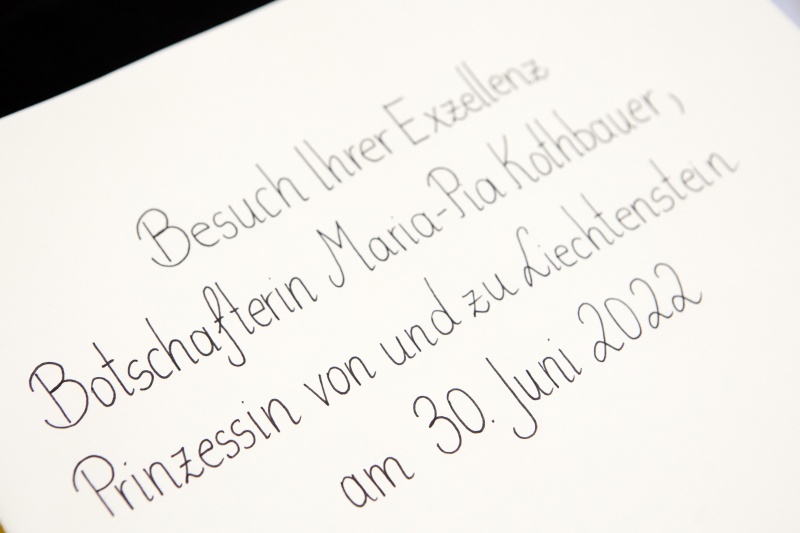 Besuch Ihrer Exzellenz
Botschafterin Maria-Pia Kothbauer,
Prinzessin von und zu Liechtenstein
am 30. Juni 2022